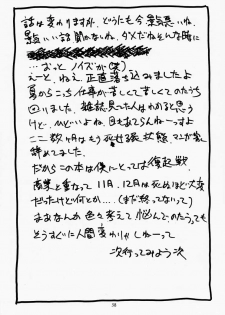 話は変わりますが、どうにも今景気悪いね。
景気いい話聞かないね。ダメだねそんな時に
…おっと ノイズが(笑)
えーと、ねえ、正直落ち込みましたよ
夏からこっち仕事が苦しくて苦しくてのたうち
回りました。雑誌見てた人はわかると思う
けど…ひどいよね。目もあてらんねーっす
ここ数ヶ月はもう 状態 マンガ家
辞めてました。
だからこの本は僕にとっては復起戦
商業と重なって 11月、12月は死ぬほど大変
だったけど何とか…。(まだ終ってないって)
まあなんか色々考えて悩んでのたうっても
そうすぐに人間変わりゃしねーって
次行ってみよう次
38